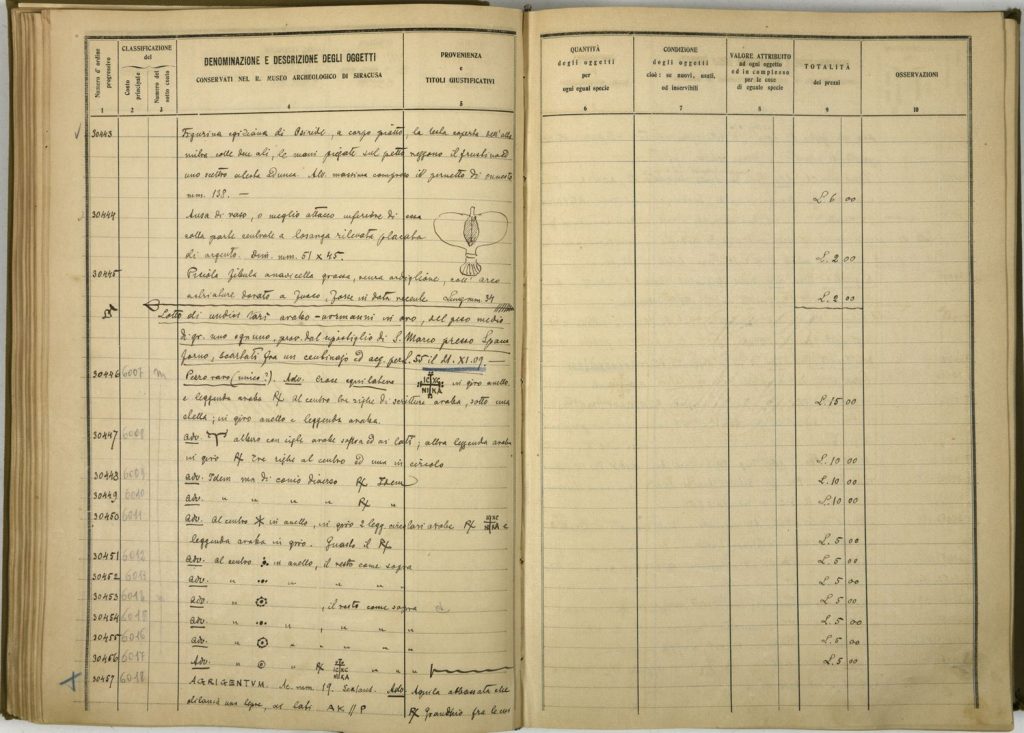 Numero d'ordine progressivo
CLASSIFICAZIONE
del
Costo principale
Numero del sotto costo
DENOMINAZIONE E DESCRIZIONE DEGLI OGGETTI
CONSERVATI NEL R. MUSEO ARCHEOLOGICO DI SIRACUSA
PROVENIENZA
e
TITOLI GIUSTIFICATIVI
QUANTITÀ
degli oggetti
per
ogni egual specie
CONDIZIONE
degli oggetti
cioè: se nuovi, usati,
od inservibili
VALORE ATTRIBUITO
ad ogni oggetto
ed in complesso
per le cose
di eguale specie
TOTALITÀ
dei prezzi
OSSERVAZIONI
1 2 3 4 5 6 7 8 9 10
30443 Figurina egiziana di Osiride, a corpo piatto, la testa coperta dell'alta
mitra colle due ali, le mani piegate sul petto reggono il frustino ed
uno scettro a testa adunca. Alt. massima compreso il pernetto di innesto
mm. 138. — L. 6 00
30444 Ansa di vaso, o meglio attacco inferiore di essa
colla parte centrale a losanga rilevata placcata
di argento. Dim. mm. 51 x 45. L. 2 00
30445 Piccola fibula a navicella grossa, senza ardiglione, coll' arco
a striature dorato a fuoco, forse in data recente. Lungh. mm. 34 L. 2 00
Lotto di undici tarì arabo-normanni in oro, del peso medio
di gr. uno ognuno, prov. dal ripostiglio di S. Marco presso Spacca
forno, scartati fra un centinajo ed acq. per L. 55 il 21. XI. 09. —
30446 6007 m Pezzo raro (unico?). Adv. Croce equilatera IC XC NI KA in giro anello
e leggenda araba R/ Al centro tre righe di scrittura araba, sotto una
stella; in giro anello e leggenda araba. L. 15 00
30447 6008 adv. albero con sigle arabe sopra ed ai lati; altra leggenda araba
in giro R/ Tre righe al centro ed una in circolo L. 10 00
30448 6009 adv. Idem ma di conio diverso R/ Idem L. 10 00
30449 6010 adv. " " " " R/ " L. 10 00
30450 6011 adv. Al centro * in anello, in giro 2 legg. circolari arabe R/ IC XC NI KA e
leggenda araba in giro. Guasto il R/ L. 5 00
30451 6012 adv. al centro in anello, il resto come sopra L. 5 00
30452 6013 adv. " " " " " L. 5 00
30453 6014 adv. " , il resto come sopra L. 5 00
30454 6015 adv. " " , " " L. 5 00
30455 6016 adv. " " " " " L. 5 00
30456 6017 Adv. " " R/ IC XC NI KA " " " L. 5 00
30457 6018 AGRIGENTVM. Ac. num. 19. Adv. Aquila abbassata che
dilania una lepre, ai lati AK // P R/ Granchio fra le cui